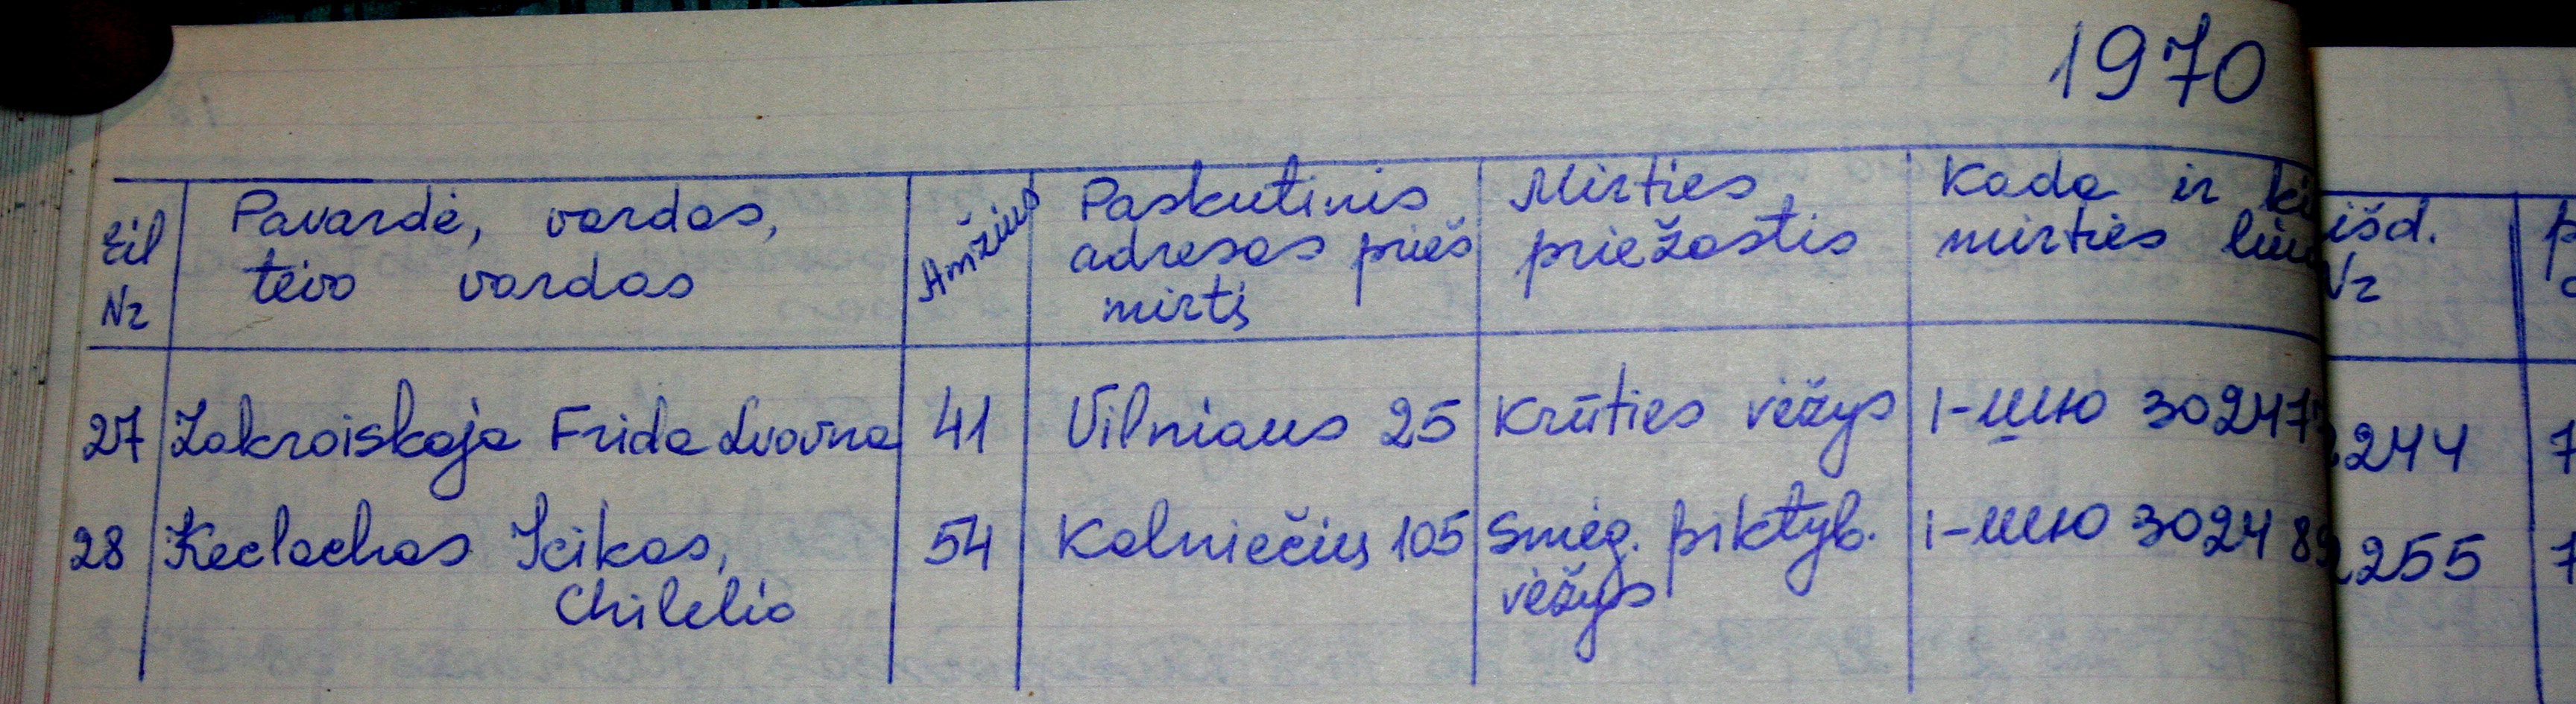 1970
Eil Nr
Pavardė, vardas, tėvo vardas
Amžius
Paskutinis adresas prieš mirtį
Mirties priežastis
Kada ir
mirties
išd. Nr
27 Zakroiskaja Frida Lvovna 41 Vilniaus 25 Krūties vėžys I-ШЮ 30247 244 7
28 Keclachas Icikas, 54 Kalniečių 105 Smeg. piktyb. I-ШЮ 302489 255 7
Chilelio vėžys